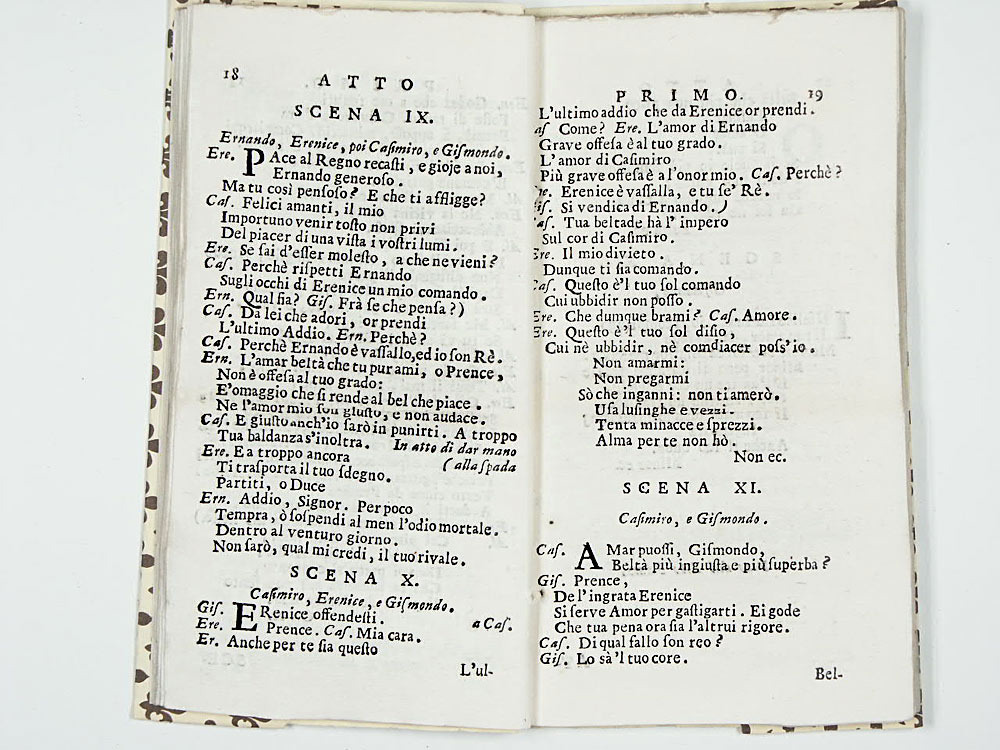 18
ATTO
SCENA IX.
Ernando, Erenice, poi Casimiro, e Gismondo.
Ere. PAce al Regno recasti, e gioje a noi,
Ernando generoso.
Ma tu così pensoso? E che ti affligge?
Cas. Felici amanti, il mio
Importuno venir tosto non privi
Del piacer di una vista i vostri lumi.
Ere. Se sai d'esser molesto, a che ne vieni?
Cas. Perchè rispetti Ernando
Sugli occhi di Erenice un mio comando.
Ern. Qual sia? Gis. Frà se che pensa?)
Cas. Da lei che adori, or prendi
L'ultimo Addio. Ern. Perchè?
Cas. Perchè Ernando è vassallo, ed io son Rè.
Ern. L'amar beltà che tu pur ami, o Prence,
Non è offesa al tuo grado:
E'omaggio che si rende al bel che piace.
Ne l'amor mio son giusto, e non audace.
Cas. E giusto anch'io sarò in punirti. A troppo
Tua baldanza s'inoltra. In atto di dar mano
Ere. E a troppo ancora (alla spada
Ti trasporta il tuo sdegno.
Partiti, o Duce
Ern. Addio, Signor. Per poco
Tempra, ò sospendi al men l'odio mortale.
Dentro al venturo giorno.
Non sarò, qual mi credi, il tuo rivale.
SCENA X.
Casimiro, Erenice, e Gismondo.
Gis. ERenice offendesti. a Cas.
Ere. Prence. Cas. Mia cara.
Er. Anche per te sia questo
L'ul-
PRIMO. 19
L'ultimo addio che da Erenice or prendi.
as Come? Ere. L'amor di Ernando
Grave offesa è al tuo grado.
L'amor di Casimiro
Più grave offesa è a l'onor mio. Cas. Perchè?
re. Erenice è vassalla, e tu se' Rè.
Gis. Si vendica di Ernando.)
as. Tua beltade hà l'impero
Sul cor di Casimiro.
Ere. Il mio divieto.
Dunque ti sia comando.
Cas. Questo è'l tuo sol comando
Cui ubbidir non posso.
Ere. Che dumque brami? Cas. Amore.
Ere. Questo è'l tuo sol disio,
Cui nè ubbidir, nè comdiacer poss'io.
Non amarmi:
Non pregarmi
Sò che inganni: non ti amerò.
Usa lusinghe e vezzi.
Tenta minacce e sprezzi.
Alma per te non hò.
Non ec.
SCENA XI.
Casimiro, e Gismondo.
Cas. AMar puossi, Gismondo,
Beltà più ingiusta e più superba?
Gis. Prence,
De l'ingrata Erenice
Si serve Amor per gastigarti. Ei gode
Che tua pena ora sia l'altrui rigore.
Cas. Di qual fallo son reo?
Gis. Lo sà'l tuo core.
Bel-